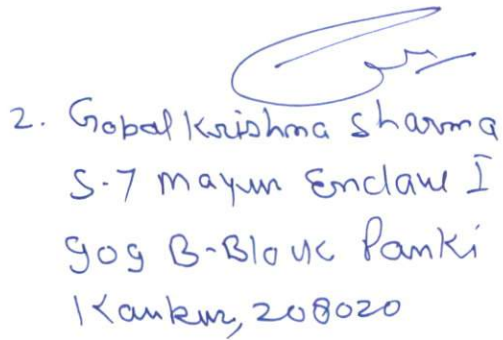 2. Gopal Krishna Sharma
S-7 Mayur Enclave I
909 B-Block Panki
Kanpur, 208020